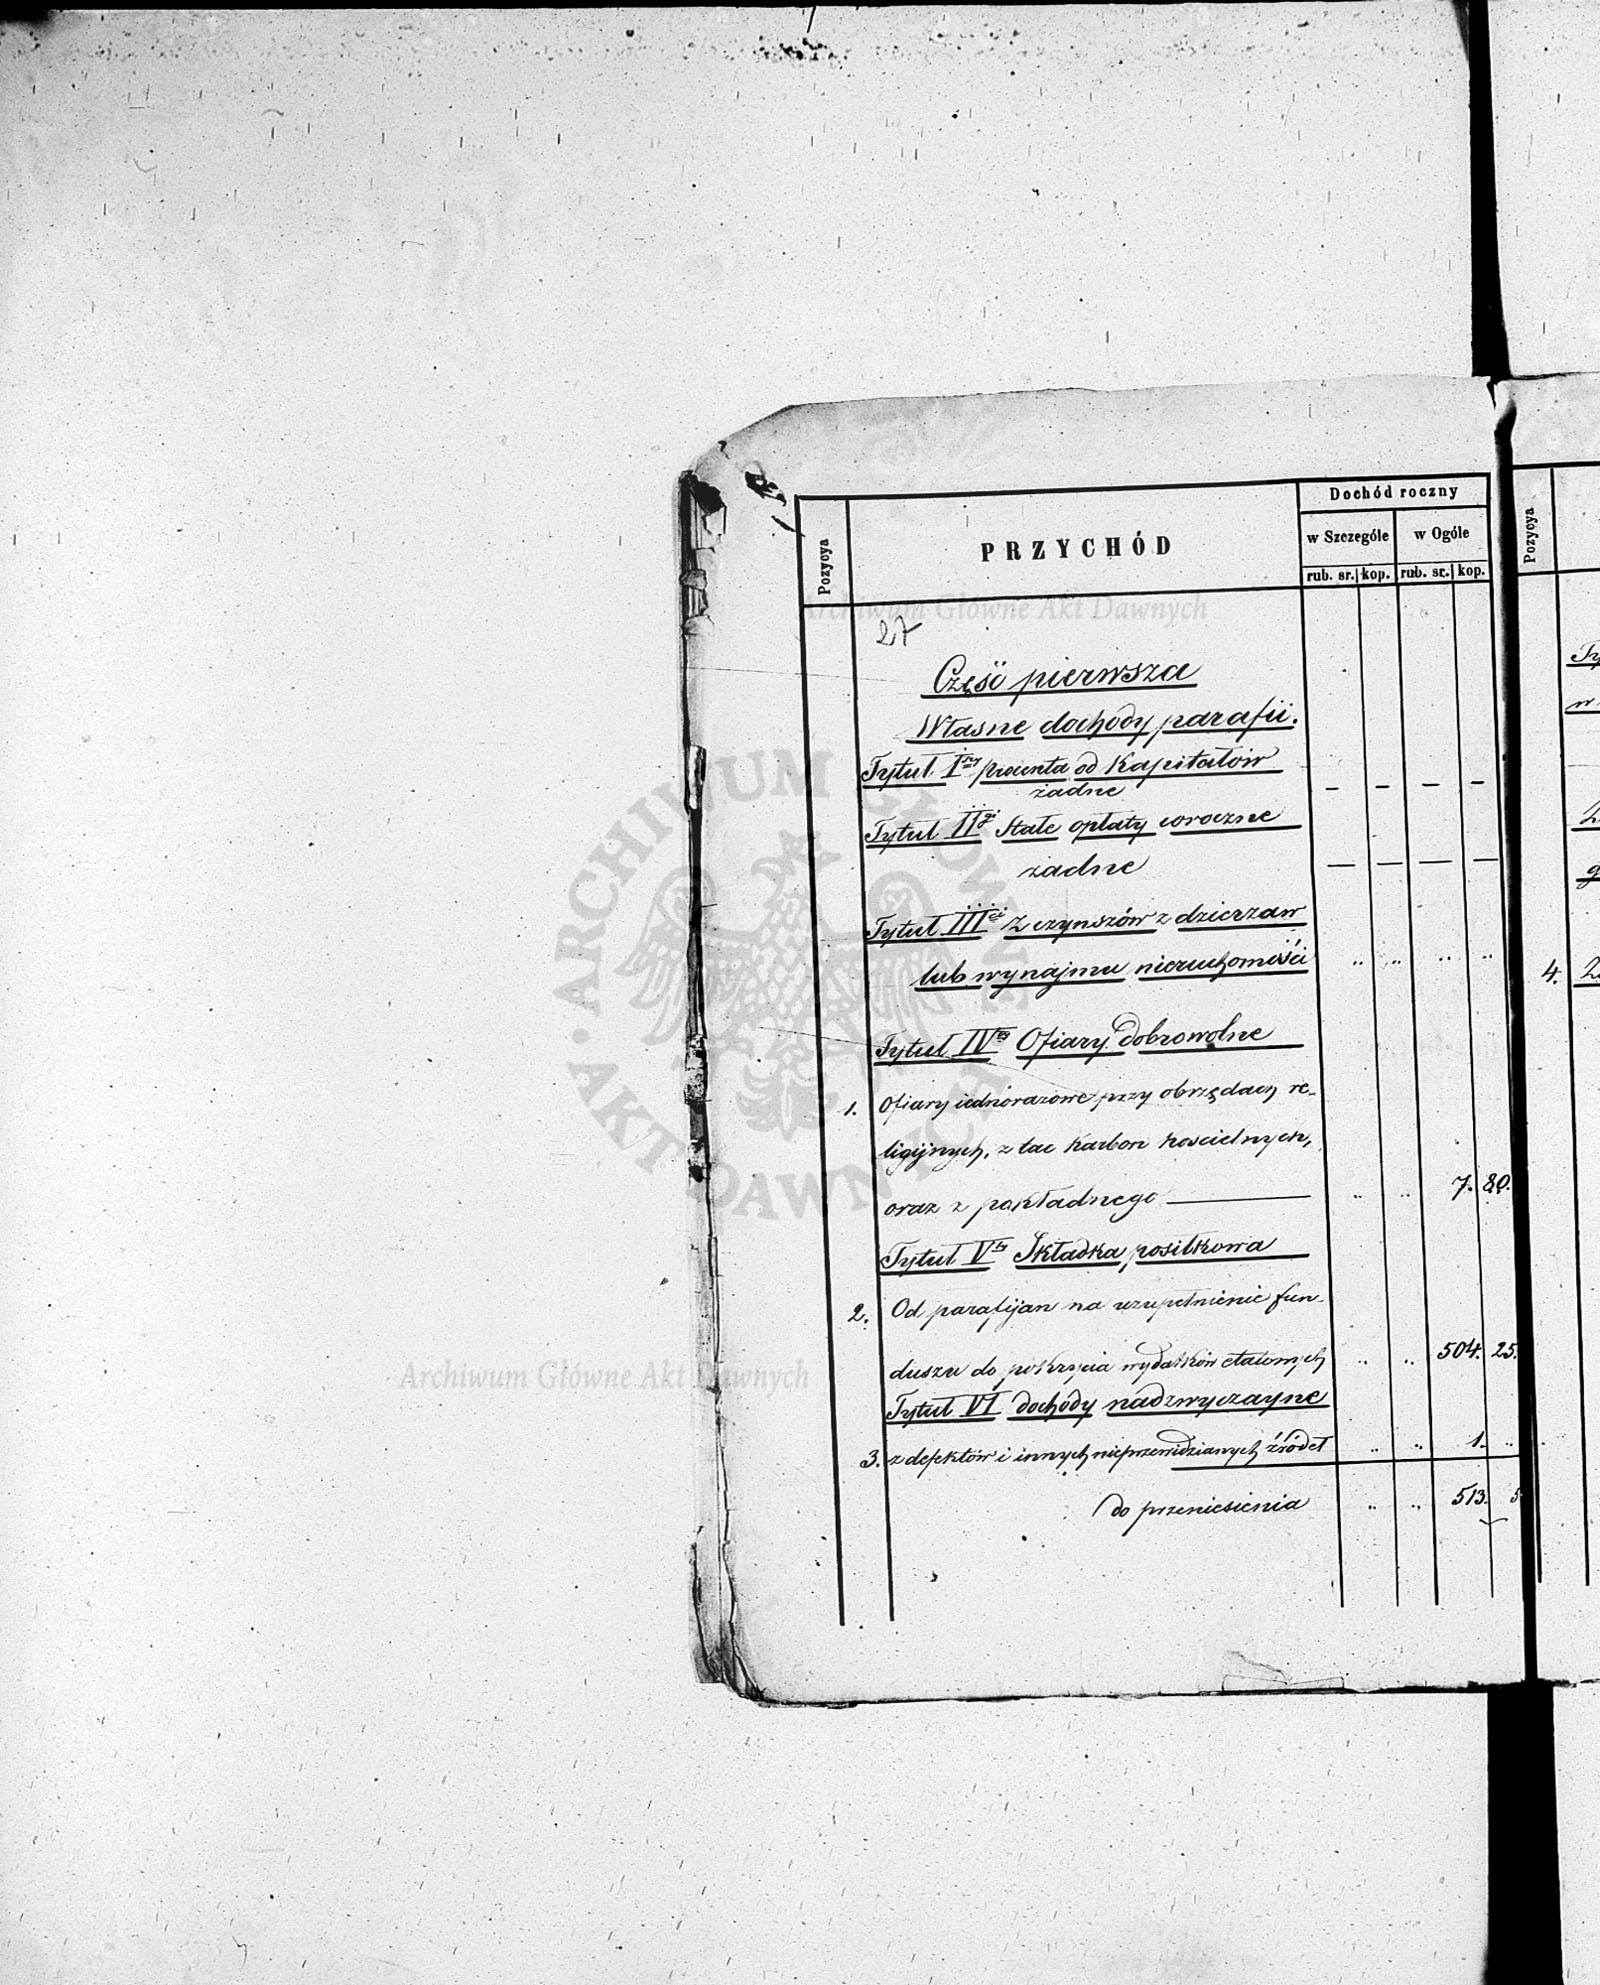 Dochód roczny
Pozycya
PRZYCHÓD
w Szczególe
w Ogóle
Pozycya
rub. sr. kop. rub. sr. kop.
Archiwum Główne Akt Dawnych
27
Część pierwsza
Własne dochody parafii.
Tytuł I szy procenta od Kapitałów
żadne – – – –
Tytuł II gi Stałe opłaty coroczne
żadne — — — —
Tytuł III ci Z czynszów z dzierżaw
lub wynajmu nieruchomości „ „ „ „
4.
Tytuł IV ty Ofiary dobrowolne
1. Ofiary jednorazowe przy obrzędach re-
ligijnych, z tac karbon kościelnych,
oraz z pokładnego — „ „ 7. 80.
Tytuł V ty Składka posiłkowa
2. Od parafijan na uzupełnienie fun-
duszu do pokrycia wydatków etatowych „ „ 504. 25.
Tytuł VI dochody nadzwyczayne
3. z defektów i innych nieprzewidzianych źródeł „ „ 1. „
do przeniesienia „ „ 513. 5
Archiwum Główne Akt Dawnych
ARCHIWUM GŁÓWNE AKT DAWNYCH